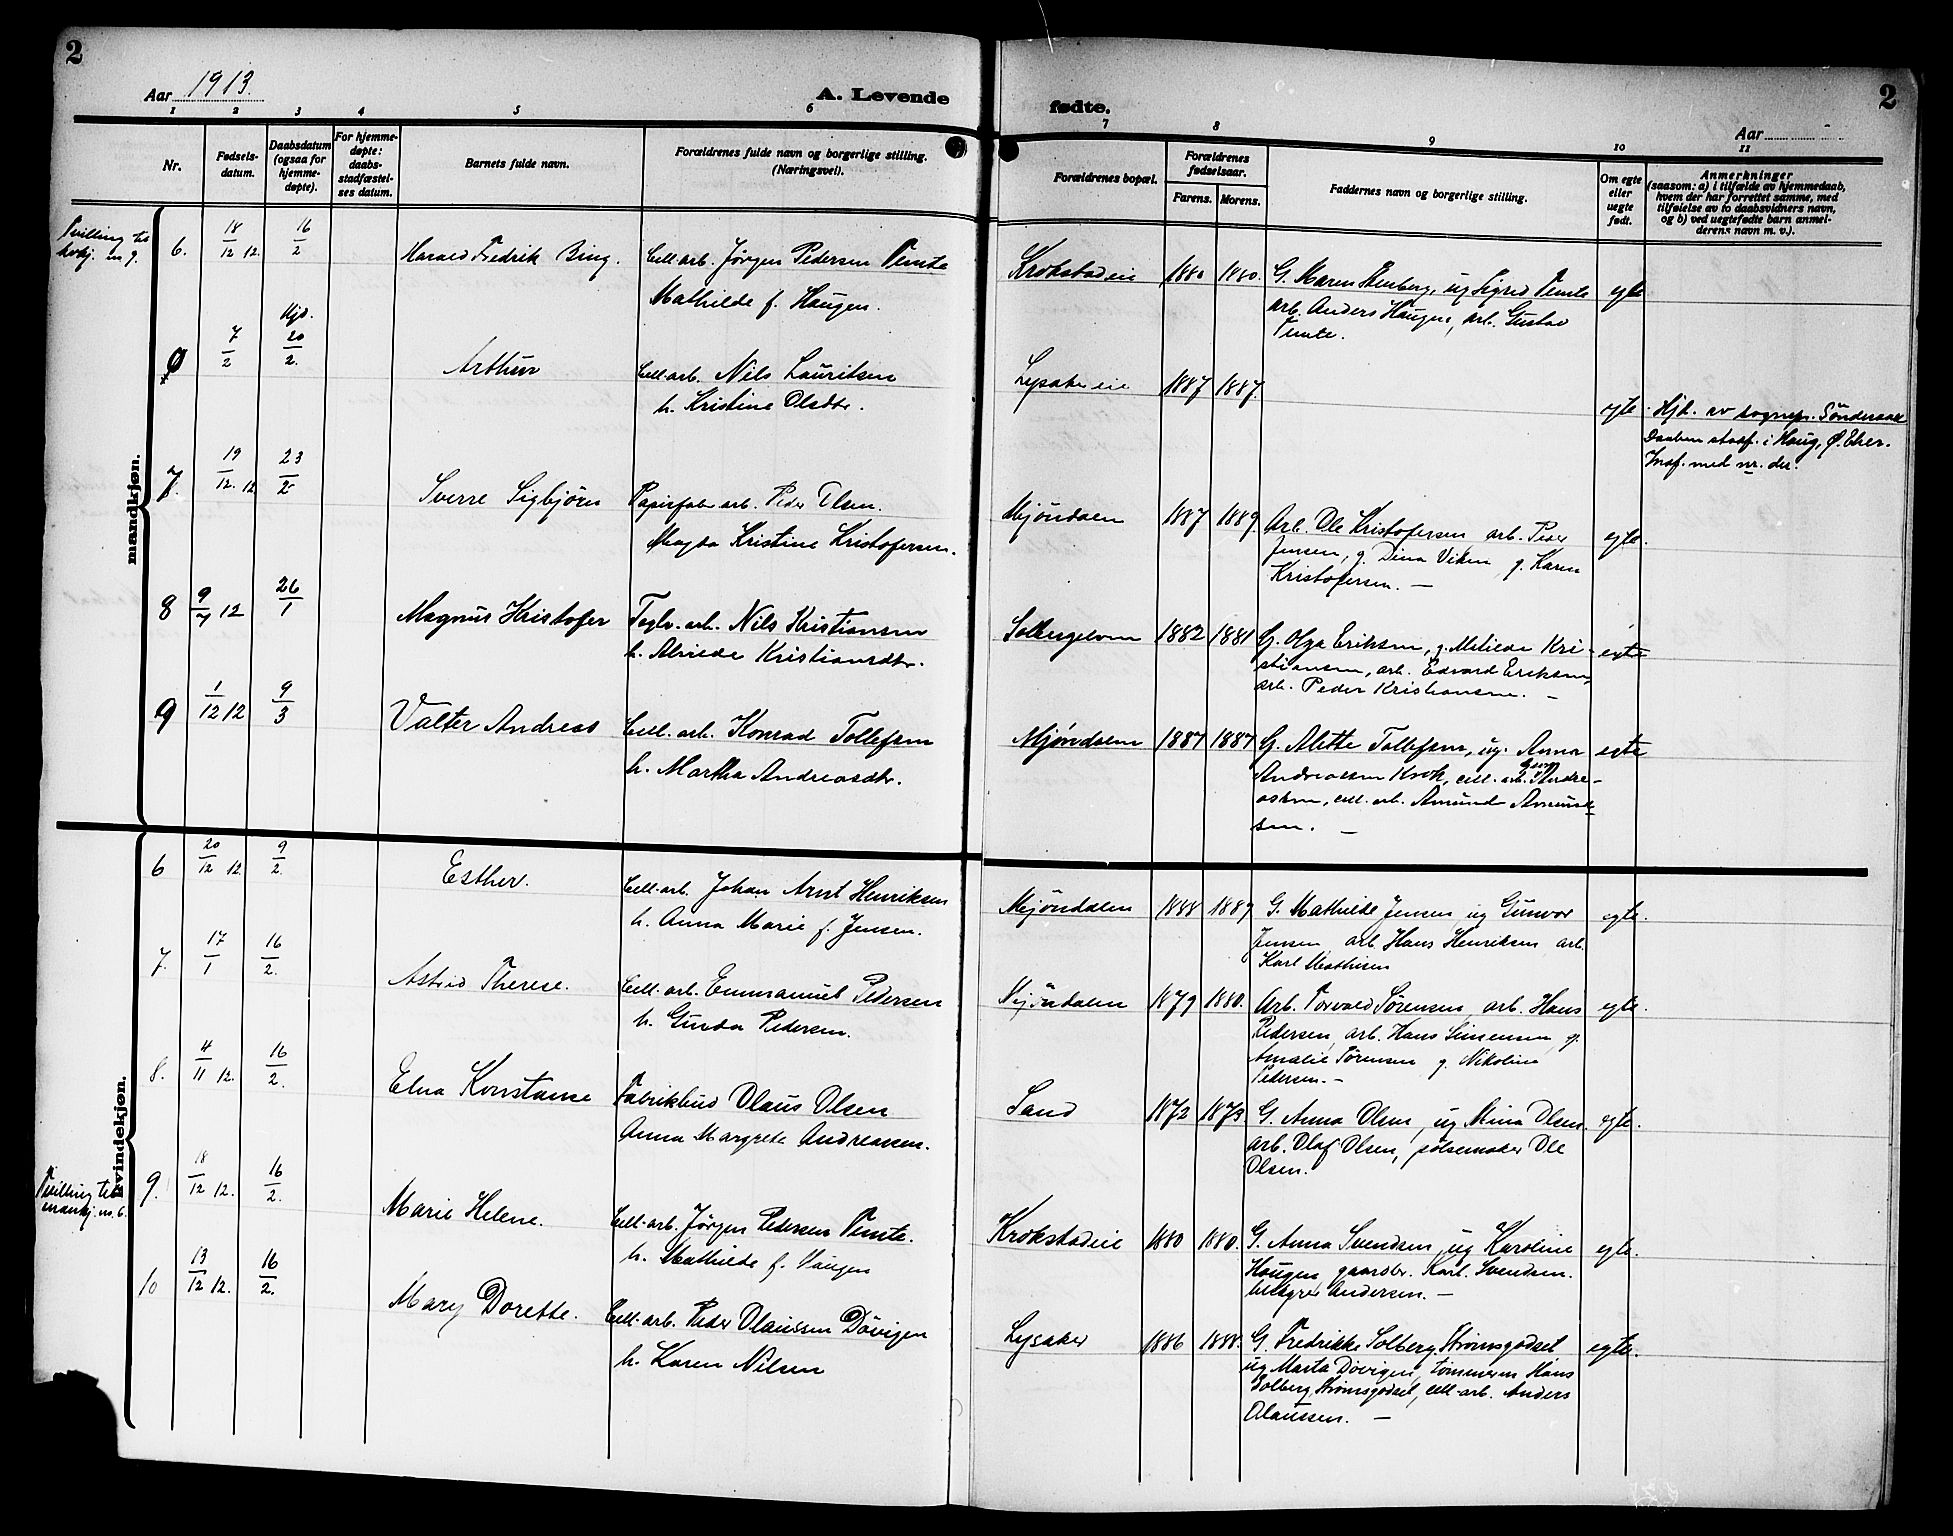 2
Aar 1913.
A. Levende
fødte.
Aar
2
1 2 3 4 5 6 7 8 9 10 11
Nr.
Fødsels-
datum.
Daabsdatum
(ogsaa for
hjemme-
døpte).
For hjemme-
døpte:
daabs-
stadfæstel-
ses datum.
Barnets fulde navn.
Forældrenes fulde navn og borgerlige stilling.
(Næringsvei).
Forældrenes bopæl.
Forældrenes
fødselsaar.
Farens. Morens.
Faddernes navn og borgerlige stilling.
Om egte
eller
uegte
født.
Anmerkninger
(saasom: a) i tilfælde av hjemmedaab,
hvem der har forrettet samme, med
tilføielse av to daabsvidners navn,
og b) ved uegtefødte barn anmel-
derens navn m. v.).
mandkjøn.
Tvilling til
kvkj. nr 9.
6. 18/12 12. 16/2 Harald Fredrik Bing. Cell-arb. Jörgen Pedersen Temte
Mathilde f. Haugen.
Krokstadeie 1880 1880. G. Maren Stenberg, ug Sigrid Temte
arb. Anders Haugen, arb. Gustav
Temte.
egte
0 7/2 Hjd. 20/2. Arthur Cell-arb. Nils Lauritsen
h. Kristine Olsdtr.
Lysaker eie 1887 1887. egte. Hjd. av sognepr. Söndersaal
Daaben stadf. i Haug, Ø. Eker.
Indf. med nr. der.
7. 19/12. 12 23/2 Sverre Sigbjörn Papirfabr arb. Peder Olsen.
Magda Kristine Kristofersen.
Mjöndalen 1887 1889. Arb. Ole Kristofersen arb. Peder
Jensen, g. Dina Viken, g. Karen
Kristofersen. —
egte.
8 9/7 12 26/1 Magnus Kristofer Teglv. arb. Nils Kristiansen
h. Alvilde Kristiansdtr.
Solbergelven 1882 1881 G. Olga Eriksen, g. Milide Kri-
stiansen, arb. Edvard Eriksen,
arb. Peder Kristiansen. —
egte
9 1/12 12 9/3 Valter Andreas Cell. arb. Konrad Tollefsen
h. Martha Andreasdtr.
Mjøndalen 1887 1887 G. Alette Tollefsen, ug. Anna
Andreassen Krok, cell. arb. Andre-
assen, cell. arb. Amund Amund-
sen. —
egte
kvindekjøn.
6 20/12 12. 9/2. Esther. Cell-arb. Johan Arnt Henriksen
h. Anna Marie f. Jensen.
Mjöndalen 1888 1889 G. Mathilde Jensen, ug Gunvor
Jensen arb. Hans Henriksen arb.
Karl Mathisen
egte.
7. 17/1 16/2. Astrid Therese. Cell-arb. Emmanuel Pedersen
h. Gunda Pedersen.
Mjöndalen 1879 1880. Arb. Torvald Sørensen, arb. Hans
Pedersen, arb. Hans Simensen, g.
Amalie Sørensen g. Nikoline
Pedersen. —
egte.
8. 4/11 12. 16/2. Elna Konstanse Fabrikbud Olaus Olsen
Anna Margrete Andreassen.
Sand 1872 1873 G. Anna Olsen, ug Mina Olsen.
arb. Olaf Olsen, pölsemaker Ole
Olsen.
egte.
Tvilling til
mankj. nr. 6.
9. 18/12 12. 16/2. Marie Helene. Cell-arb. Jörgen Pedersen Temte.
h. Mathilde f. Haugen
Krokstadeie 1880 1880. G. Anna Svendsen, ug Karoline
Haugen, gaardbr. Karl. Svendsen.
Andersen. —
egte.
10 13/12 12. 16/2. Mary Dorette. Cell-arb. Peder Olaussen Dövigen
h. Karen Nilsen
Lysaker 1886 1888. G. Fredrikke Solberg, Strömsgodset
ug Marta Dövigen, tömmerm Hans
Solberg, Strömsgodset, cell-arb. Anders
Olaussen. —
egte.